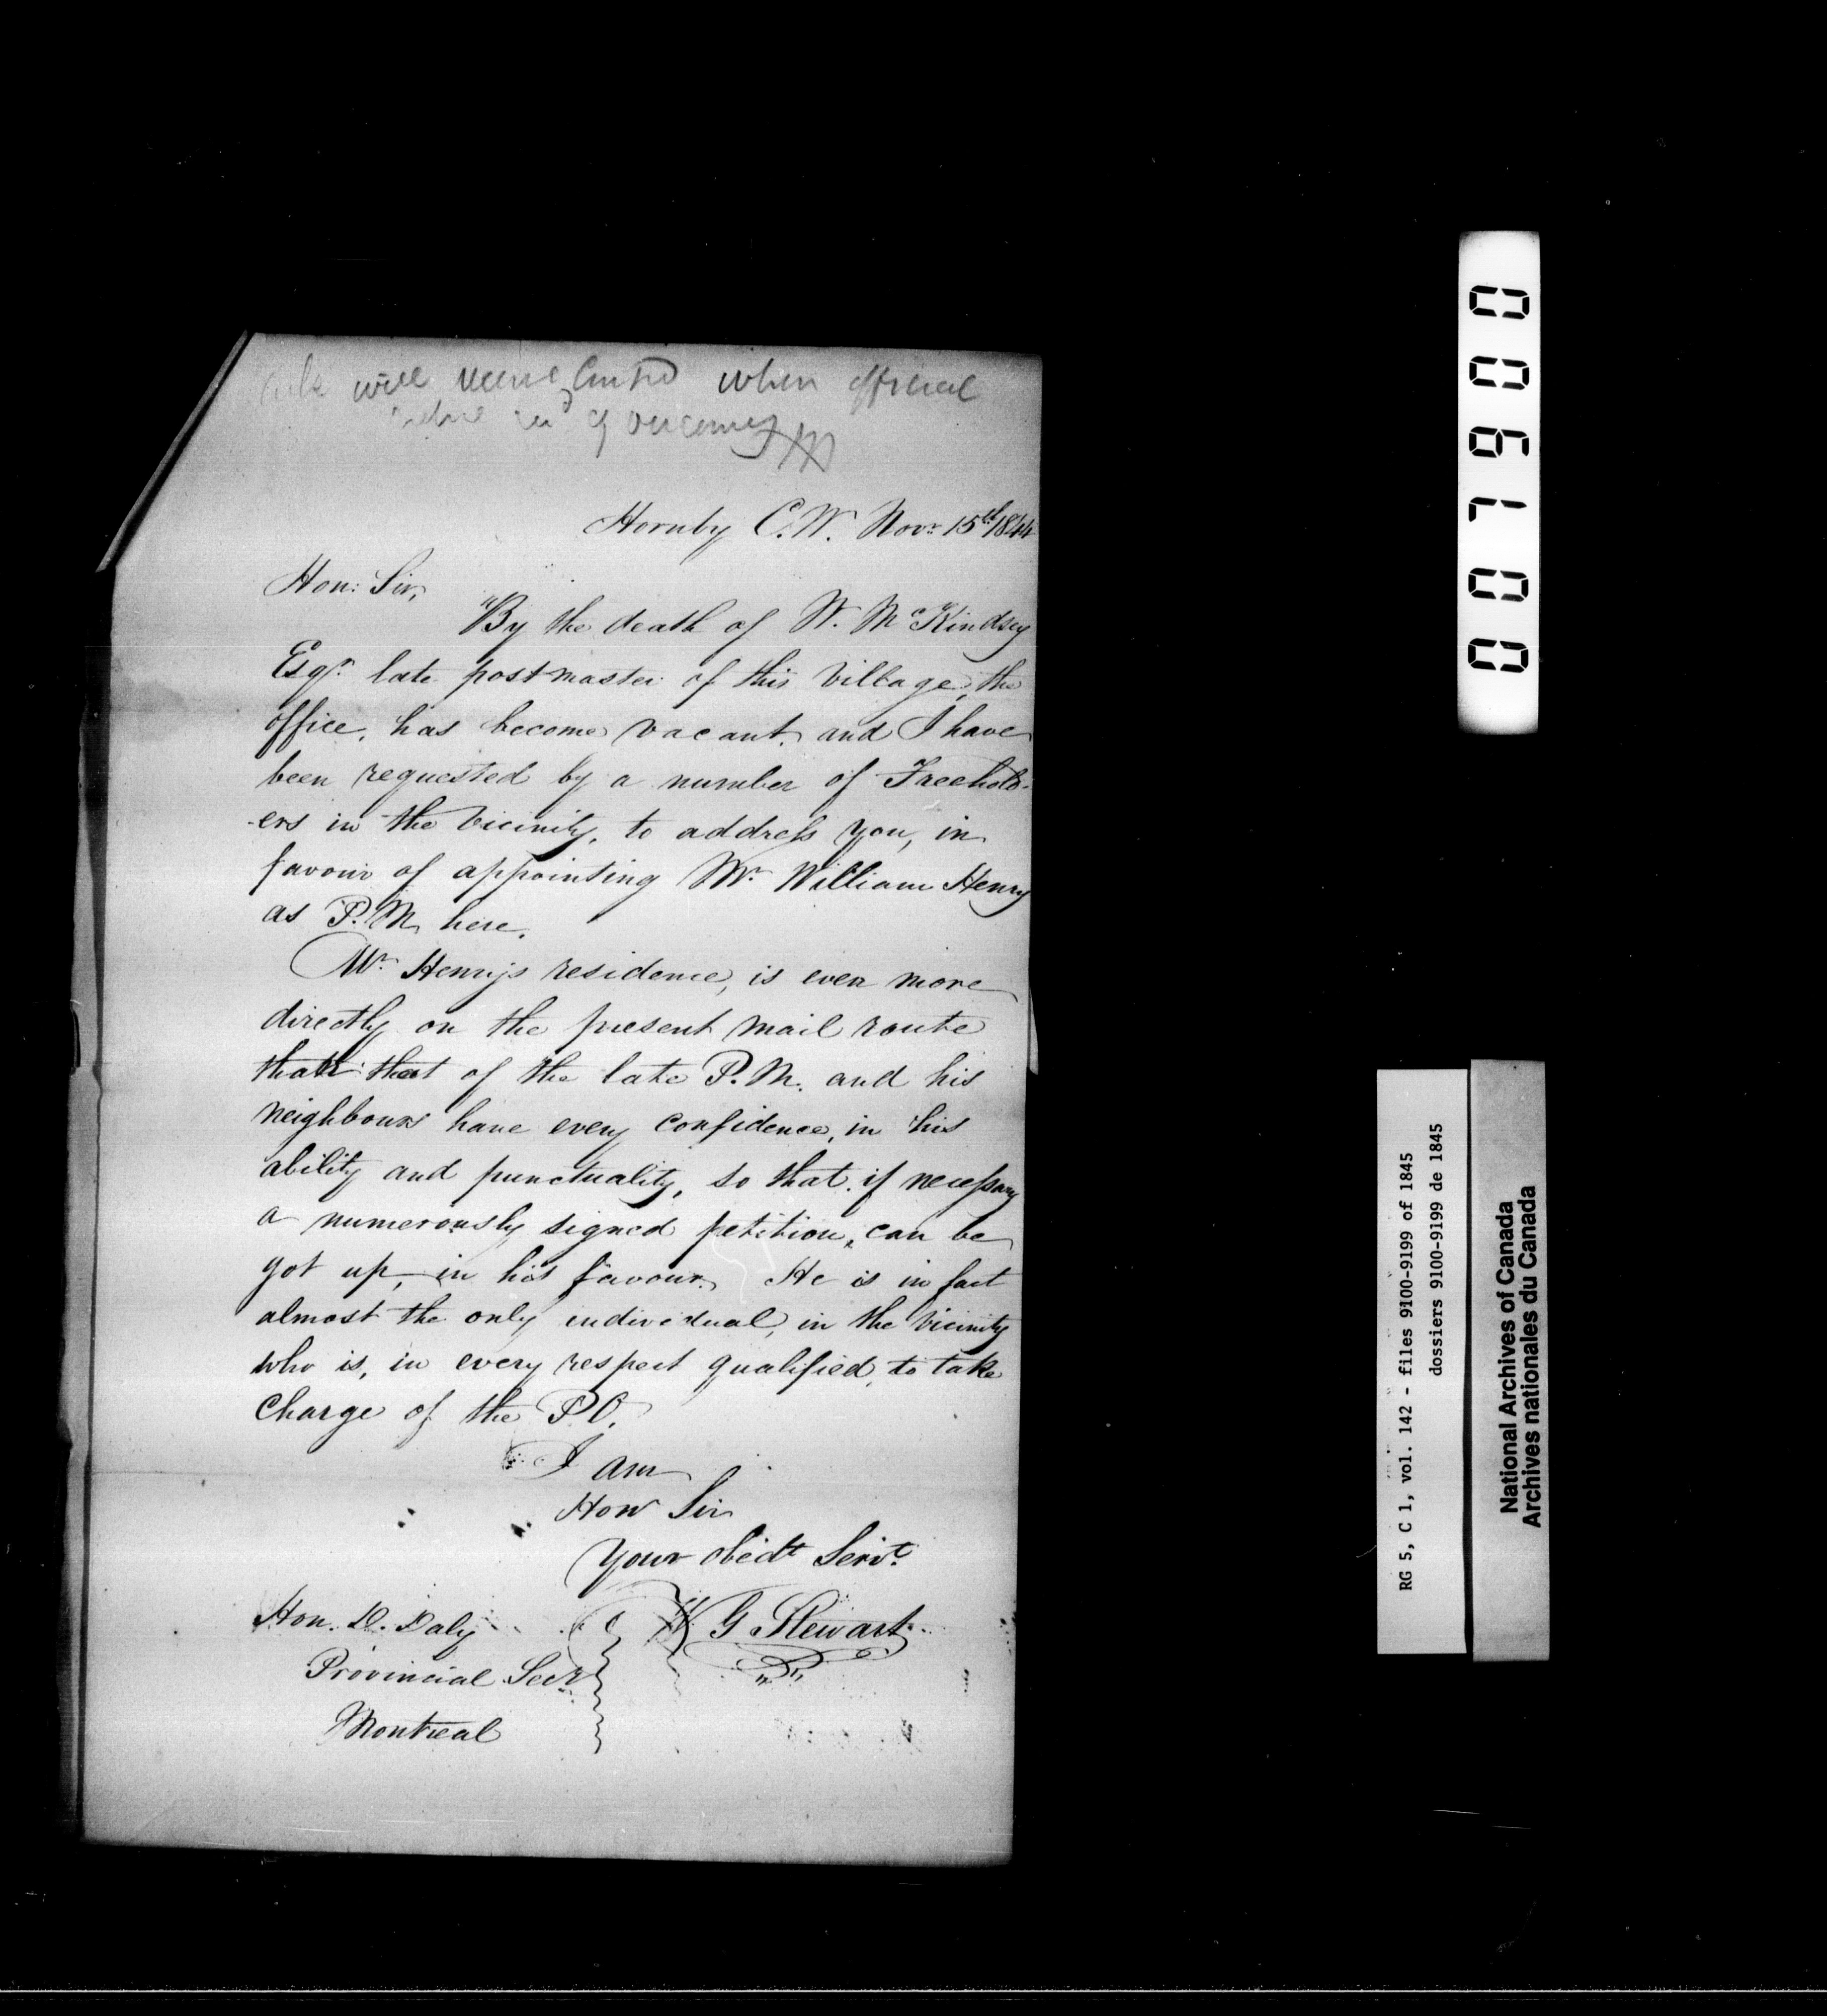 will when official
of vacancy
Hornby C.W. Novr. 15th 1844
Hon: Sir,
"By the death of W. McKindsey
Esqr. late postmaster of this Village, the
office, has become vacant, and I have
been requested by a number of Freehold-
-ers in the vicinity, to address you, in
favour of appointing Mr. William Henry
as P.M. here.
Mr. Henrys residence, is even more
directly on the present mail route
than that of the late P.M. and his
neighbours have every confidence, in his
ability and punctuality, so that if necessary
a numerously signed petition, can be
got up, in his favour. He is in fact
almost the only individual, in the vicinity
who is, in every respect qualified, to take
Charge of the P.O.
I am
Hon Sir
Your obedt Servt.
G Stewart
Hon. D. Daly
Provincial Secr
Montreal
0 0 7 9 0 0
RG 5, C 1, vol. 142 - files 9100-9199 of 1845
dossiers 9100-9199 de 1845
National Archives of Canada
Archives nationales du Canada